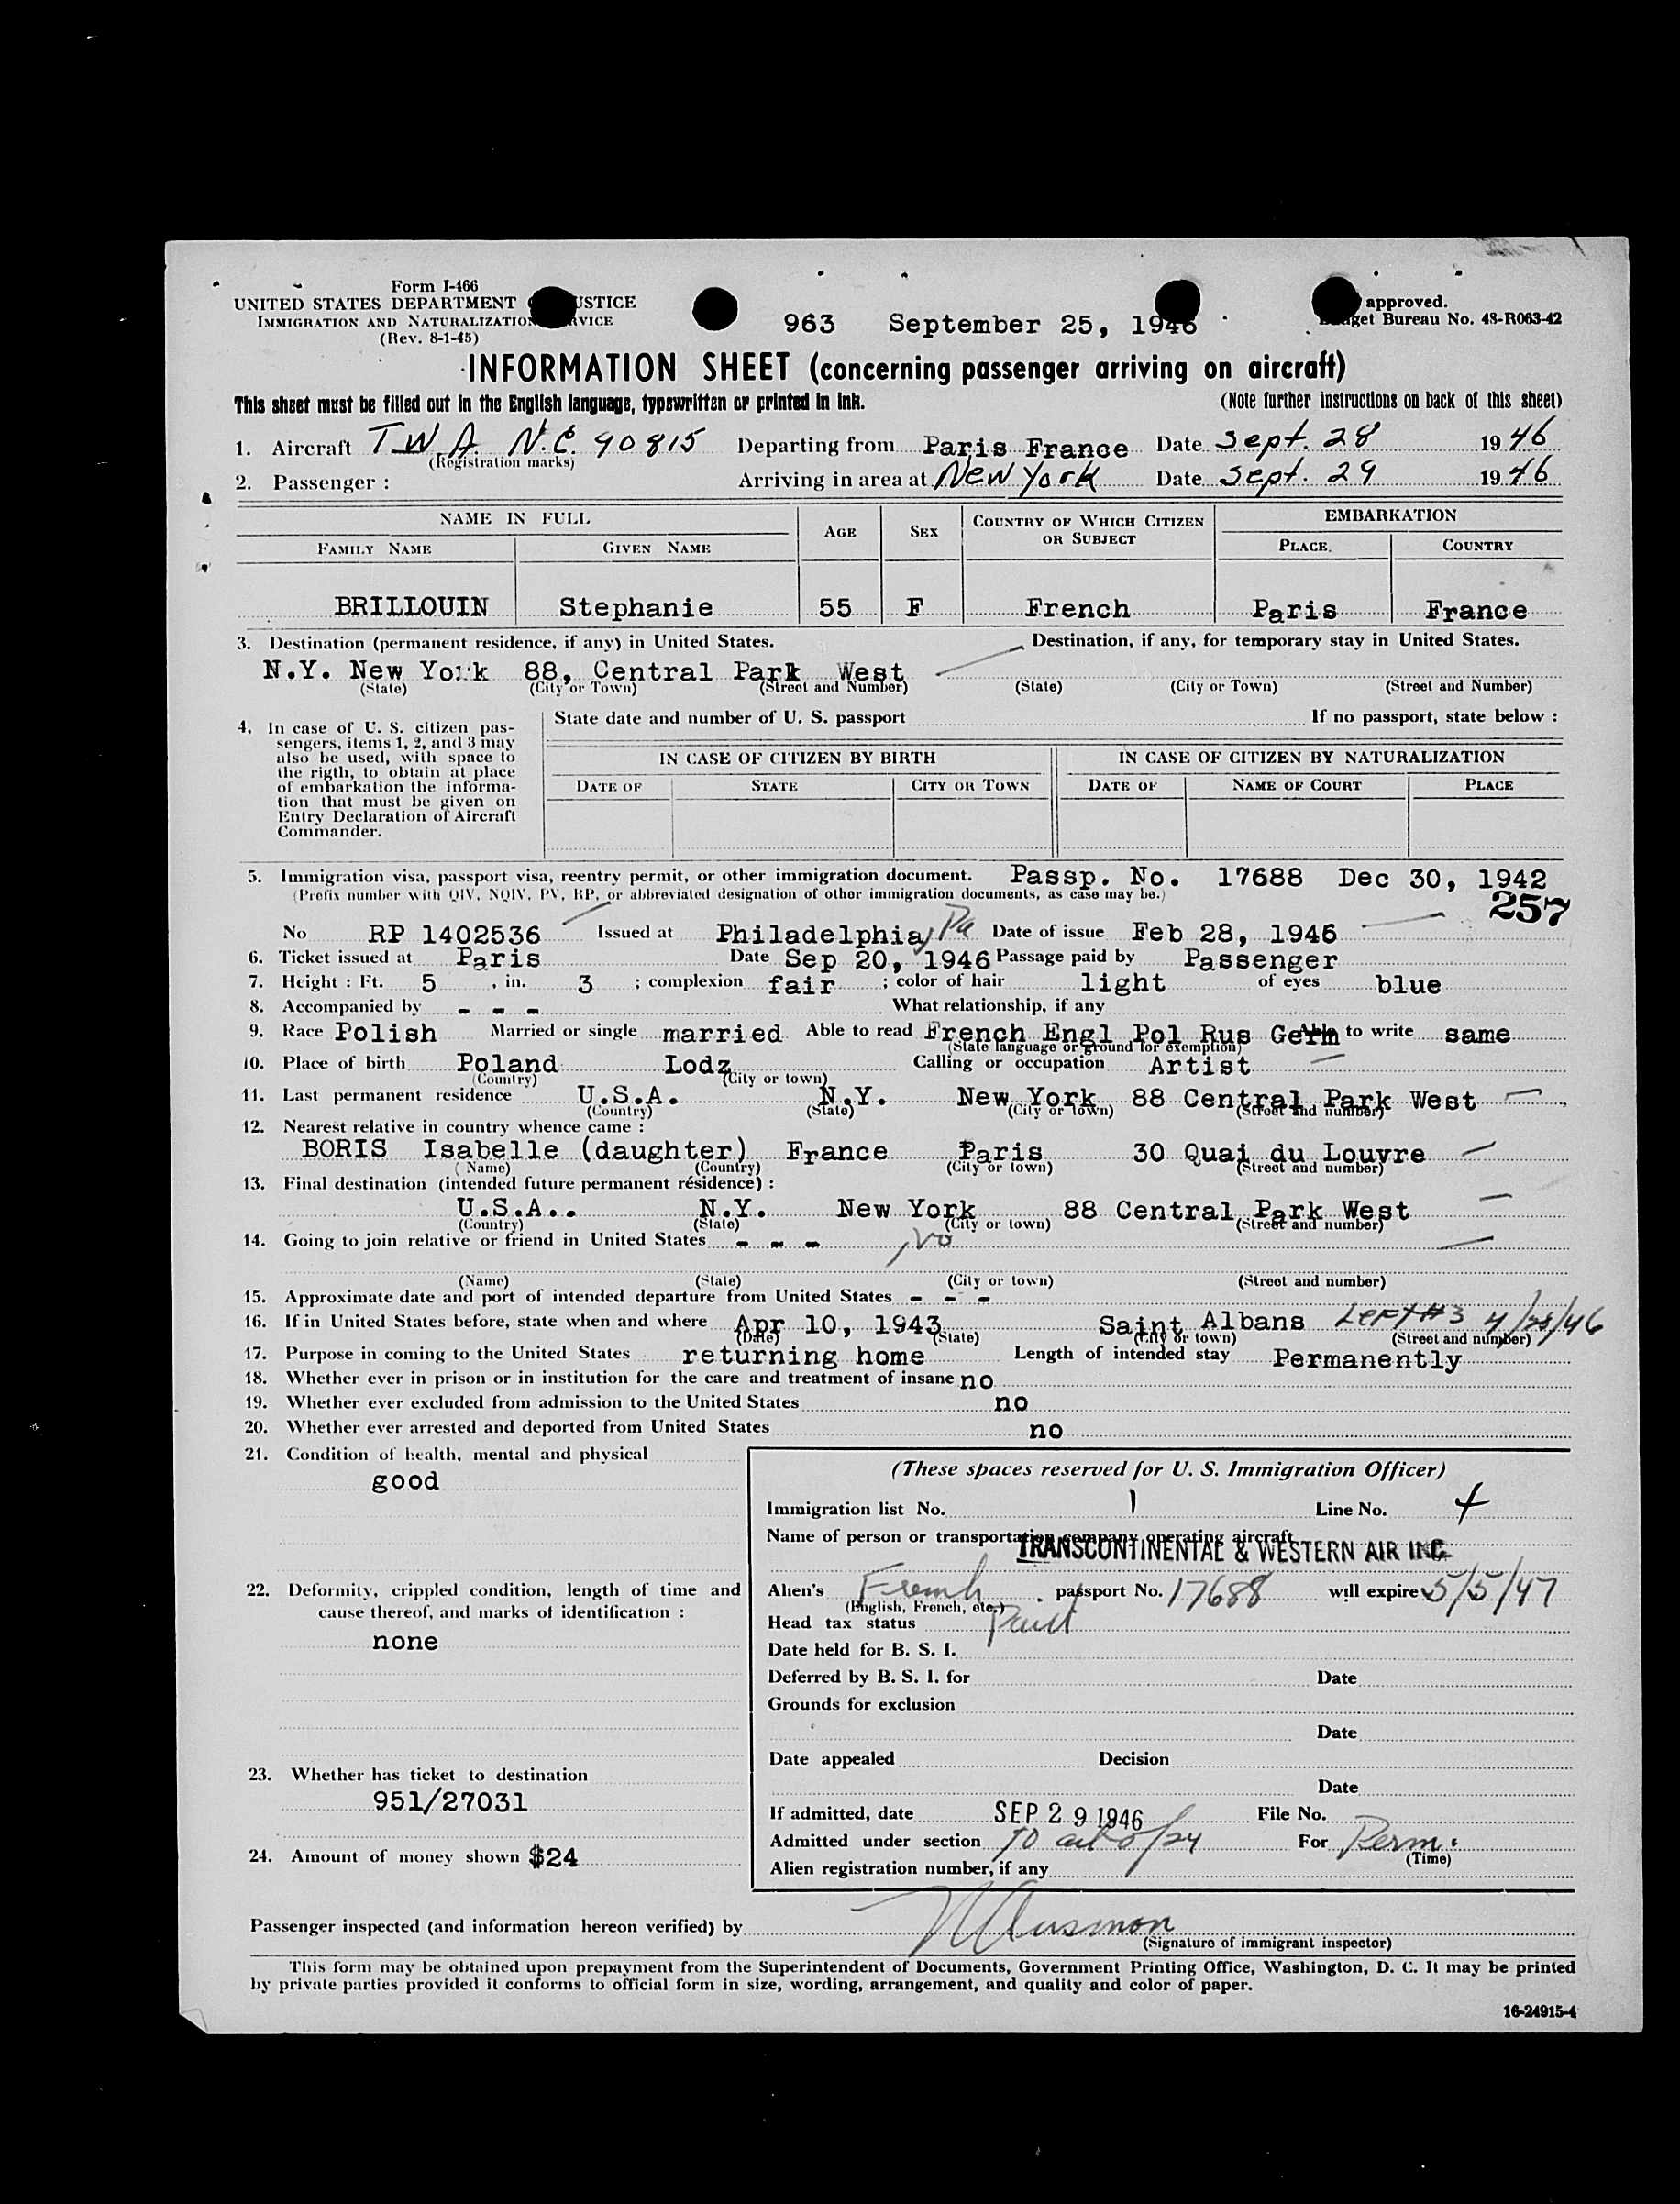 Form I-466
UNITED STATES DEPARTMENT USTICE
IMMIGRATION AND NATURALIZATION RVICE
(Rev. 8-1-45)
963 September 25, 1946
approved.
get Bureau No. 43-R063-42
INFORMATION SHEET (concerning passenger arriving on aircraft)
This sheet must be filled out in the English language, typewritten or printed in ink. (Note further instructions on back of this sheet)
1. Aircraft T.W.A. N.C. 90815 Departing from Paris France Date Sept. 28 1946
(Registration marks)
2. Passenger : Arriving in area at New York Date Sept. 29 1946
NAME IN FULL AGE SEX COUNTRY OF WHICH CITIZEN OR SUBJECT EMBARKATION
FAMILY NAME GIVEN NAME PLACE COUNTRY
BRILLOUIN Stephanie 55 F French Paris France
3. Destination (permanent residence, if any) in United States. Destination, if any, for temporary stay in United States.
N.Y. New York 88, Central Park West
(State) (City or Town) (Street and Number) (State) (City or Town) (Street and Number)
4. In case of U. S. citizen pas-
sengers, items 1, 2, and 3 may
also be used, with space to
the rigth, to obtain at place
of embarkation the informa-
tion that must be given on
Entry Declaration of Aircraft
Commander.
State date and number of U. S. passport If no passport, state below :
IN CASE OF CITIZEN BY BIRTH IN CASE OF CITIZEN BY NATURALIZATION
DATE OF STATE CITY OR TOWN DATE OF NAME OF COURT PLACE
5. Immigration visa, passport visa, reentry permit, or other immigration document. Passp. No. 17688 Dec 30, 1942
(Prefix number with QIV, NQIV, PV, RP, or abbreviated designation of other immigration documents, as case may be.) 257
No RP 1402536 Issued at Philadelphia, Pa Date of issue Feb 28, 1946
6. Ticket issued at Paris Date Sep 20, 1946 Passage paid by Passenger
7. Height : Ft. 5 , in. 3 ; complexion fair ; color of hair light of eyes blue
8. Accompanied by - - - What relationship, if any
9. Race Polish Married or single married Able to read French Engl Pol Rus Germ Able to write same
(State language or ground for exemption)
10. Place of birth Poland Lodz Calling or occupation Artist
(Country) (City or town)
11. Last permanent residence U.S.A. N.Y. New York 88 Central Park West
(Country) (State) (City or town) (Street and number)
12. Nearest relative in country whence came :
BORIS Isabelle (daughter) France Paris 30 Quai du Louvre
(Name) (Country) (City or town) (Street and number)
13. Final destination (intended future permanent résidence) :
U.S.A.. N.Y. New York 88 Central Park West
(Country) (State) (City or town) (Street and number)
14. Going to join relative or friend in United States - - - No
(Name) (State) (City or town) (Street and number)
15. Approximate date and port of intended departure from United States - - -
16. If in United States before, state when and where Apr 10, 1943 Saint Albans Left #3 4/25/46
(Date) (State) (City or town) (Street and number)
17. Purpose in coming to the United States returning home Length of intended stay Permanently
18. Whether ever in prison or in institution for the care and treatment of insane no
19. Whether ever excluded from admission to the United States no
20. Whether ever arrested and deported from United States no
21. Condition of health, mental and physical
good
22. Deformity, crippled condition, length of time and
cause thereof, and marks of identification :
none
23. Whether has ticket to destination
951/27031
24. Amount of money shown $24
(These spaces reserved for U. S. Immigration Officer)
Immigration list No. 1 Line No. 4
Name of person or transportation company operating aircraft
TRANSCONTINENTAL & WESTERN AIR INC.
Alien's French passport No. 17688 will expire 5/5/47
(English, French, etc.)
Head tax status Paid
Date held for B. S. I.
Deferred by B. S. I. for Date
Grounds for exclusion
Date
Date appealed Decision
Date
If admitted, date SEP 29 1946 File No.
Admitted under section 10 act of 24 For Perm.
(Time)
Alien registration number, if any
Passenger inspected (and information hereon verified) by
(Signature of immigrant inspector)
This form may be obtained upon prepayment from the Superintendent of Documents, Government Printing Office, Washington, D. C. It may be printed
by private parties provided it conforms to official form in size, wording, arrangement, and quality and color of paper.
16-24915-4